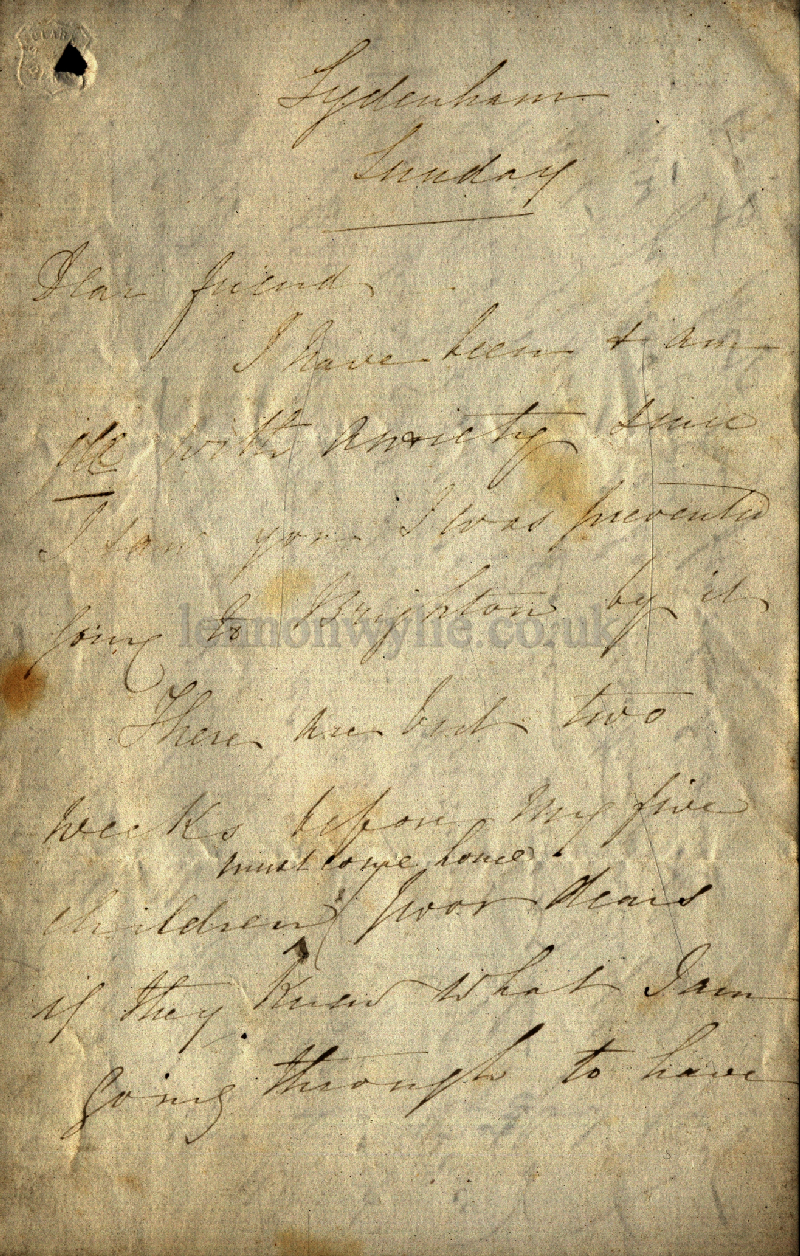 Sydenham
Sunday
Dear friend
I have been & am
ill with anxiety since
I saw you. I was prevented
going to Brighton by it
lennonwylie.co.uk
There are but two
weeks before my five
must come home
children poor dears
if they knew what I am
going through to have